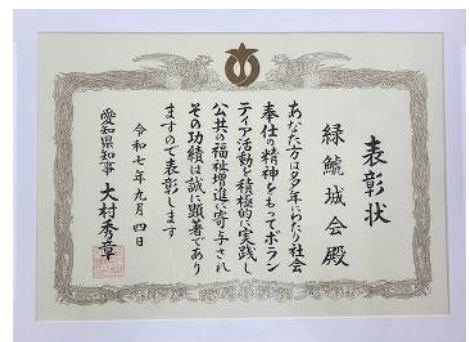 表彰状
緑鯱城会殿
あなた方は多年にわたり社会
奉仕の精神をもってボラン
ティア活動を積極的に実践し
公共の福祉増進に寄与され
その功績は誠に顕著であり
ますので表彰します
令和七年九月四日
愛知県知事 大村秀章